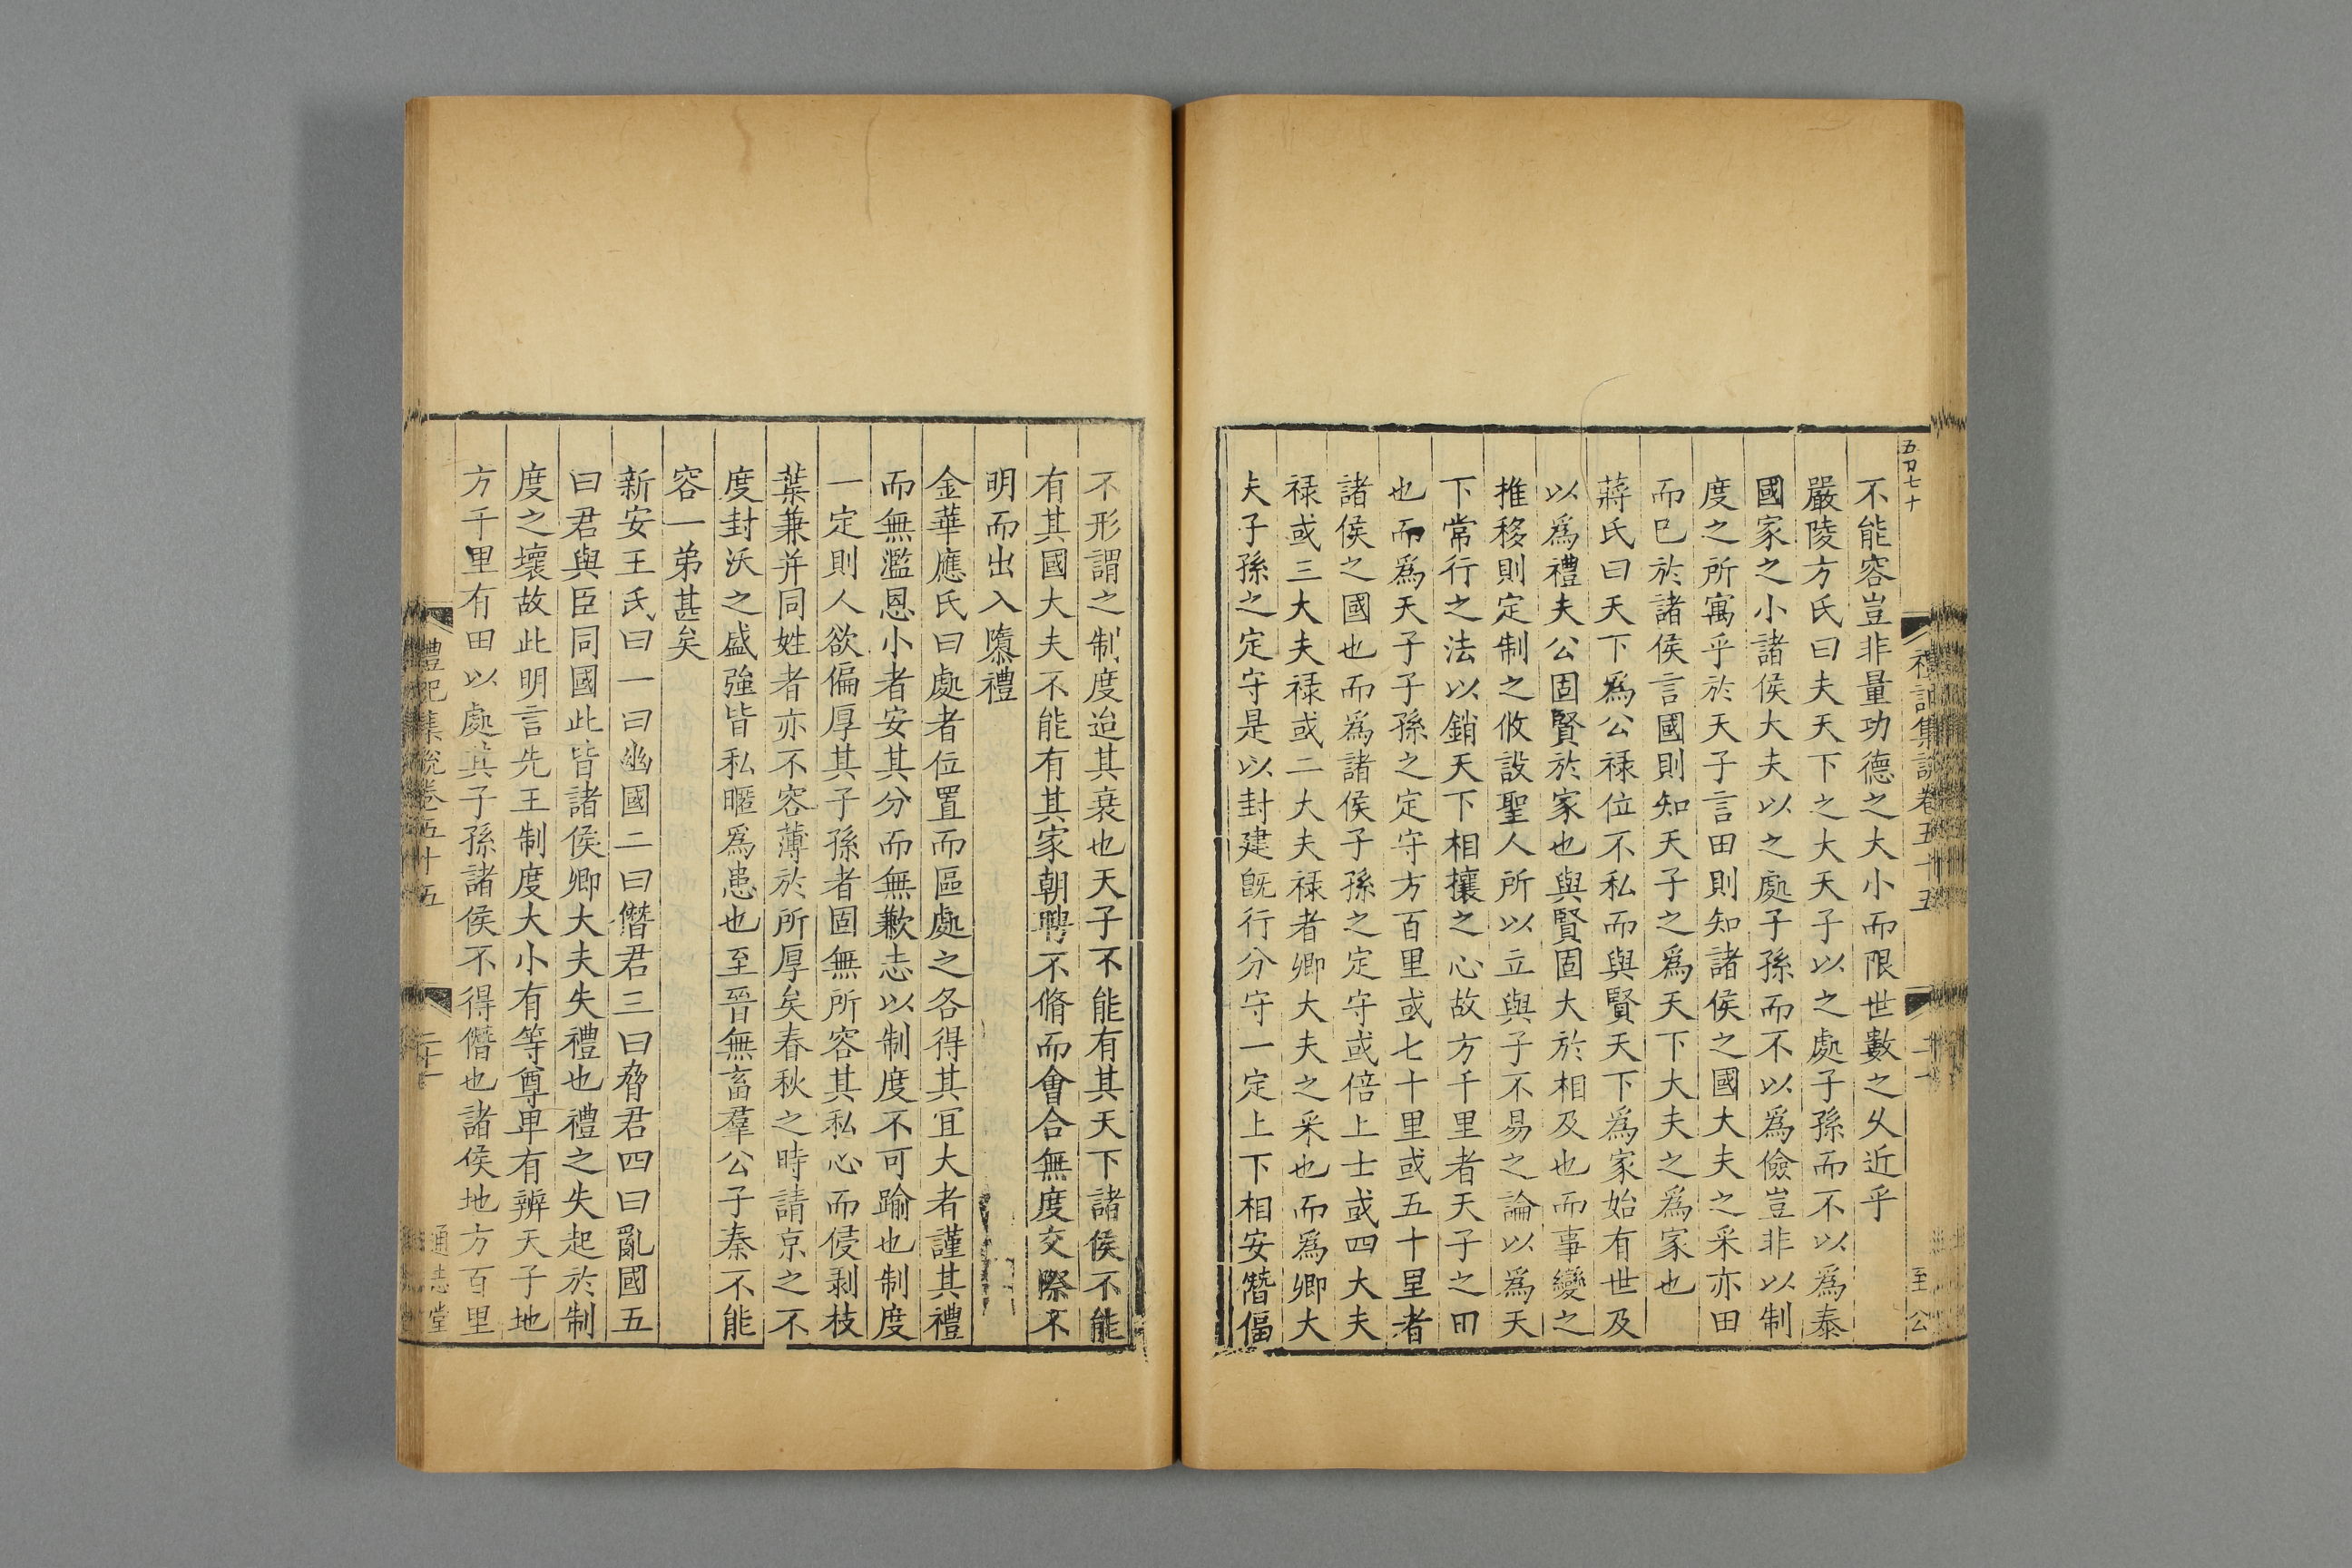 五百七十
禮記集說卷五十五
二十
至公
不能容豈非量功德之大小而限世數之久近乎
嚴陵方氏曰夫天下之大天子以之處子孫而不以爲泰
國家之小諸侯大夫以之處子孫而不以爲儉豈非以制
度之所寓乎於天子言田則知諸侯之國大夫之采亦田
而已於諸侯言國則知天子之爲天下大夫之爲家也
蔣氏曰天下爲公祿位不私而與賢天下爲家始有世及
以爲禮夫公固賢於家也與賢固大於相及也而事變之
推移則定制之攸設聖人所以立與子不易之論以爲天
下常行之法以銷天下相攘之心故方千里者天子之田
也而爲天子子孫之定守方百里或七十里或五十里者
諸侯之國也而爲諸侯子孫之定守或倍上士或四大夫
祿或三大夫祿或二大夫祿者卿大夫之采也而爲卿大
夫子孫之定守是以封建旣行分守一定上下相安僭偪
不形謂之制度迨其衰也天子不能有其天下諸侯不能
有其國大夫不能有其家朝聘不脩而會合無度交際不
明而出入隳禮
金華應氏曰處者位置而區處之各得其宜大者謹其禮
而無濫恩小者安其分而無歉志以制度不可踰也制度
一定則人欲偏厚其子孫者固無所容其私心而侵剥枝
葉兼并同姓者亦不容薄於所厚矣春秋之時請京之不
度封沃之盛強皆私暱爲患也至晉無畜羣公子秦不能
容一弟甚矣
新安王氏曰一曰幽國二曰僭君三曰脅君四曰亂國五
曰君與臣同國此皆諸侯卿大夫失禮也禮之失起於制
度之壞故此明言先王制度大小有等尊卑有辨天子地
方千里有田以處其子孫諸侯不得僭也諸侯地方百里
禮記集說卷五十五
二十一
通志堂